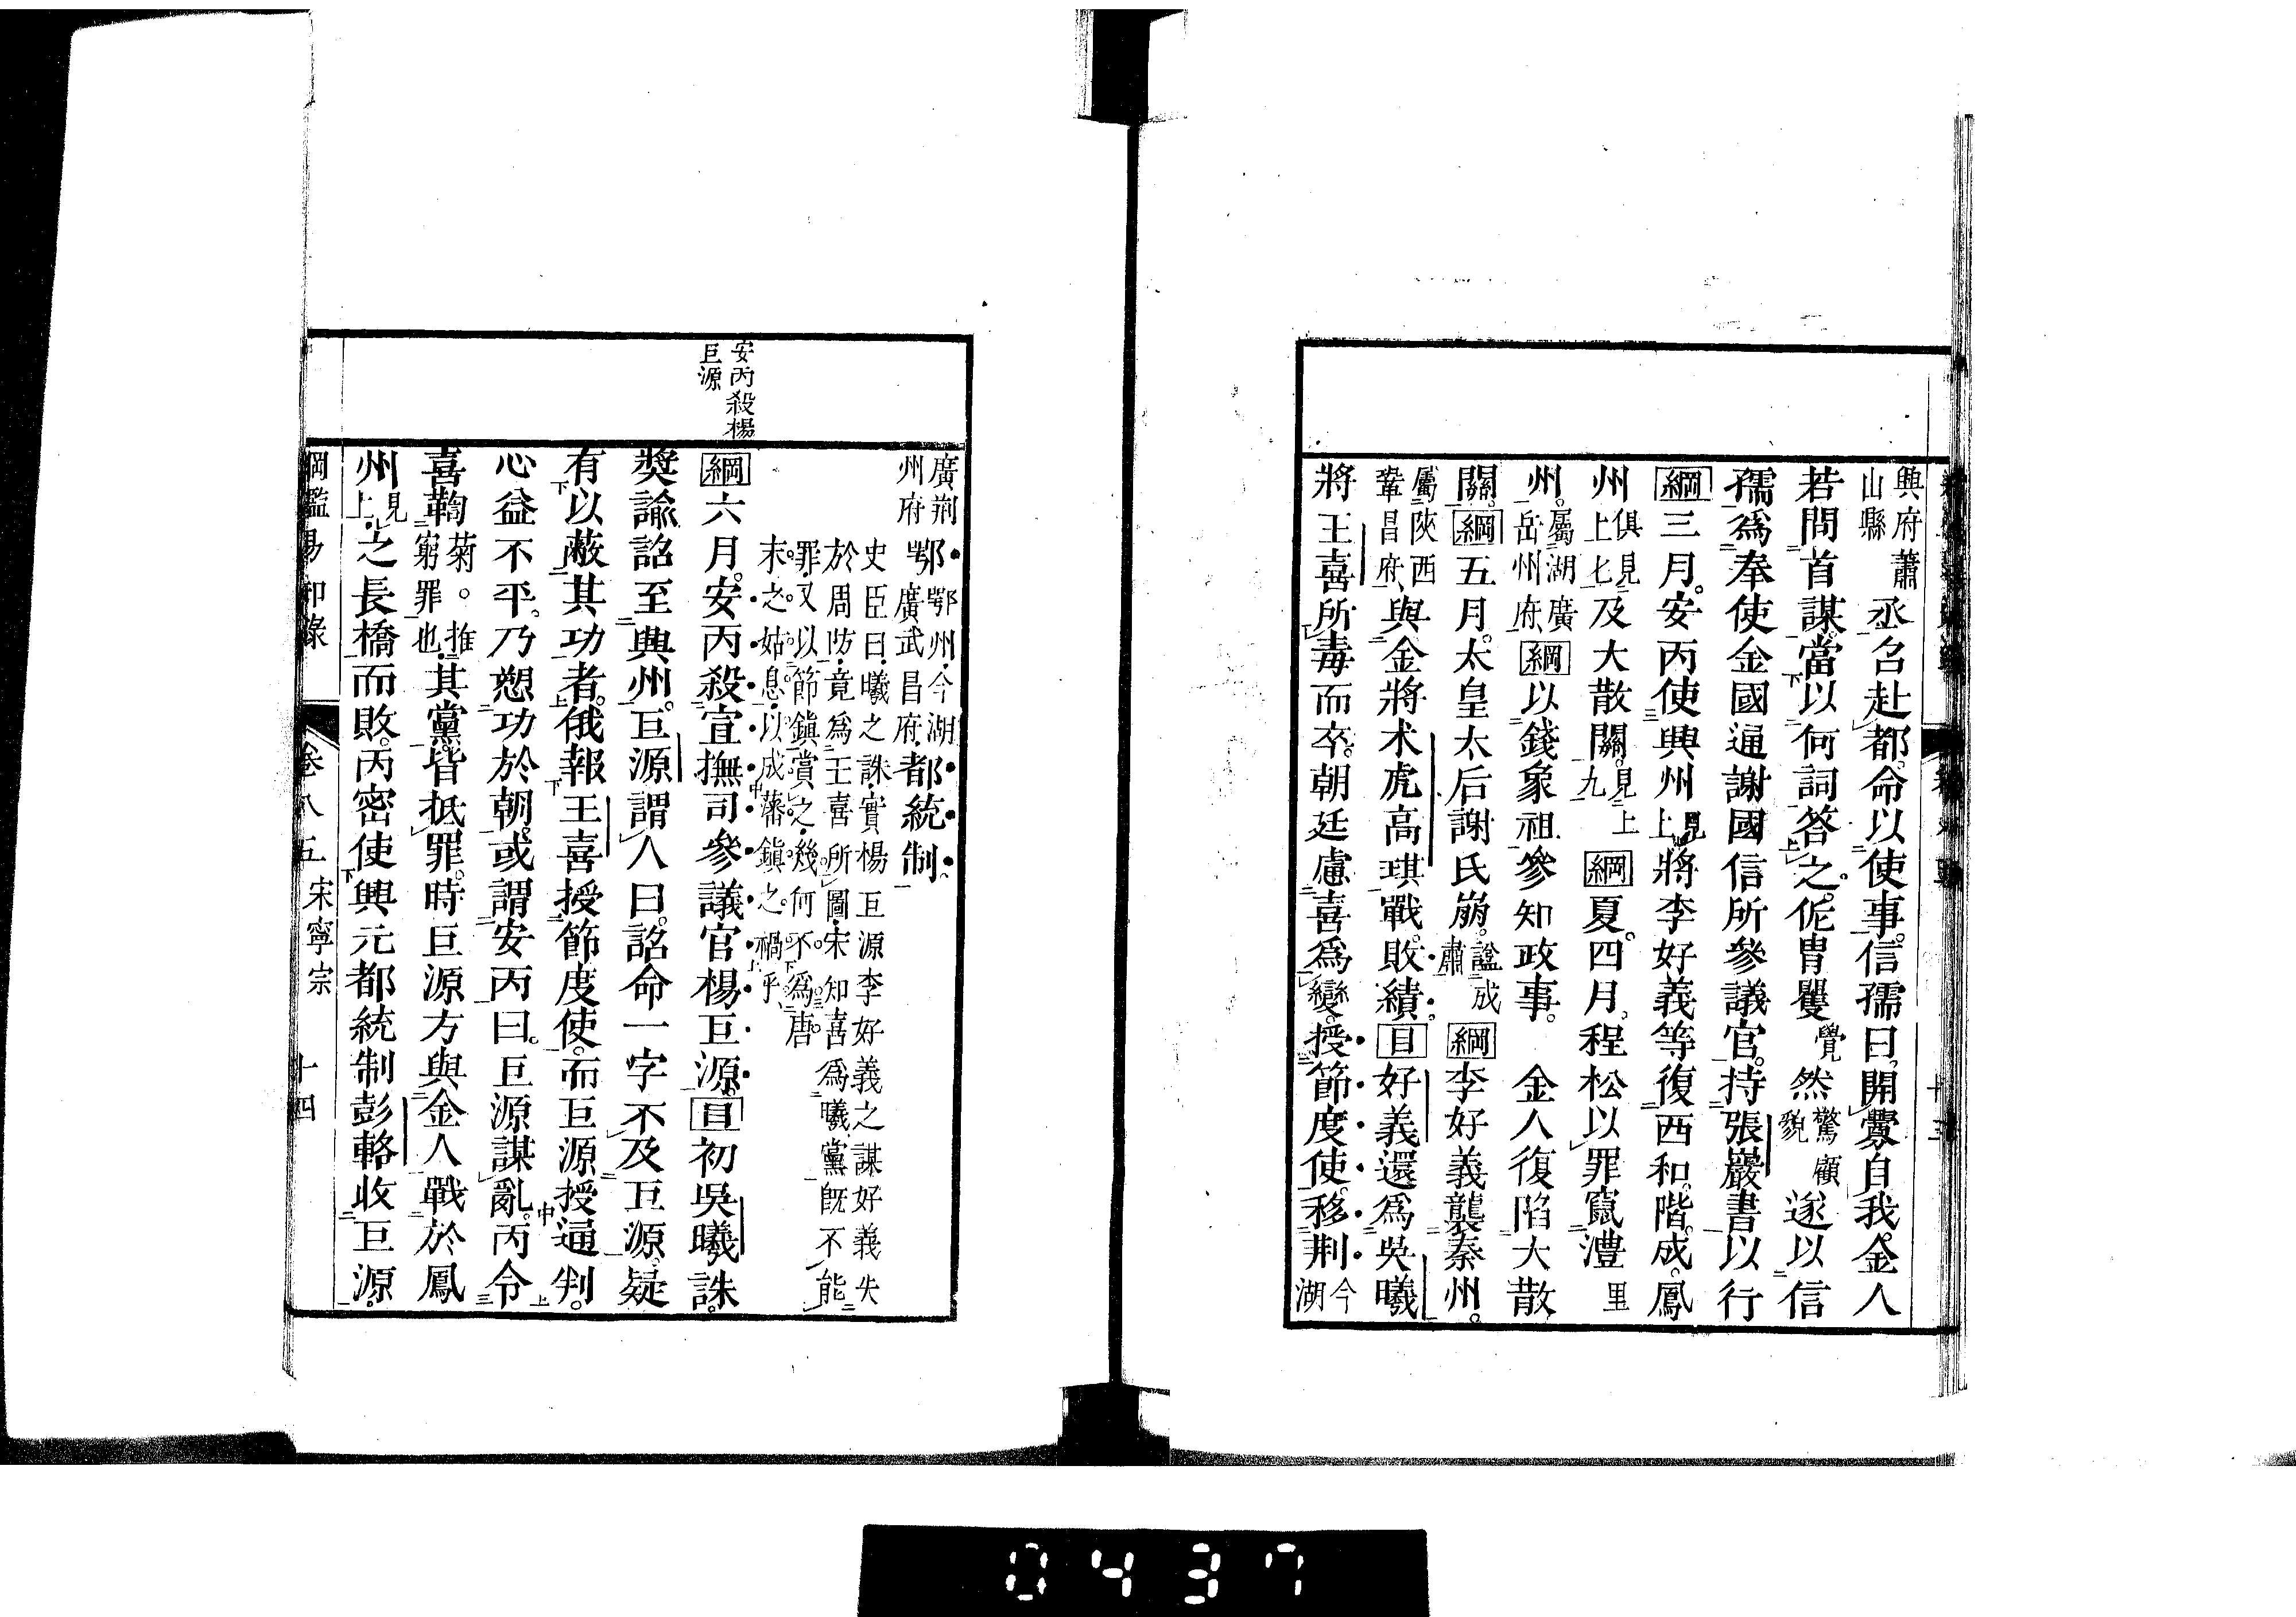 興府蕭
山縣
丞召赴都命以使事信孺曰開釁自我金人
若問首謀當以何詞答之侂冑矍
覺
然
驚顧
貌
遂以信
孺爲奉使金國通謝國信所參議官持張巖書以行
綱三月安丙使興州
見
上
將李好義等復西和階成鳳
州
俱見
上七
及大散關
見上
九
綱夏四月程松以罪竄澧
里
州
屬湖廣
岳州府
綱以錢象祖參知政事 金人復陷大散
關綱五月太皇太后謝氏崩
諡成
肅
綱李好義襲秦州
屬陜西
鞏昌府
與金將术虎高琪戰敗績目好義還爲吳曦
將王喜所毒而卒朝廷慮喜爲變授節度使移荆
今
湖
廣荆
州府
鄂
鄂州今湖
廣武昌府
都統制
史臣曰曦之誅實楊巨源李好義之謀好義失
於周防竟爲王喜所圖宋知喜爲曦黨旣不能
罪又以節鎮賞之幾何不爲唐
末之姑息以成藩鎮之禍乎
安丙殺楊
巨源
綱六月安丙殺宣撫司參議官楊巨源目初吳曦誅
奬諭詔至興州巨源謂人曰詔命一字不及巨源疑
有以蔽其功者俄報王喜授節度使而巨源授通判
心益不平乃愬功於朝或謂安丙曰巨源謀亂丙令
喜鞫
菊推
窮罪也
其黨皆抵罪時巨源方與金人戰於鳳
州
見
上
之長橋而敗丙密使興元都統制彭輅收巨源
綱鑑易知錄
卷八五 宋寧宗
十四
0437